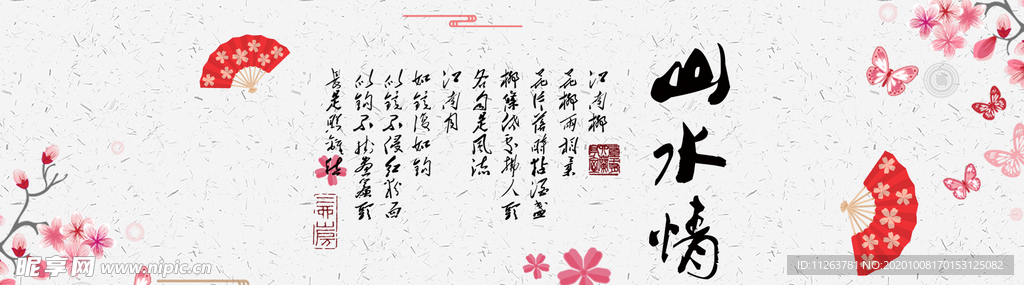 山水情
江南柳
花柳两相柔
花片落时粘酒盏
柳条低处拂人头
各自是风流
江南月
如镜复如钩
似镜不侵红粉面
似钩不挂画帘头
长是照离愁
昵享网 www.nipic.cn
ID:11263781 NO:20201008170153125082